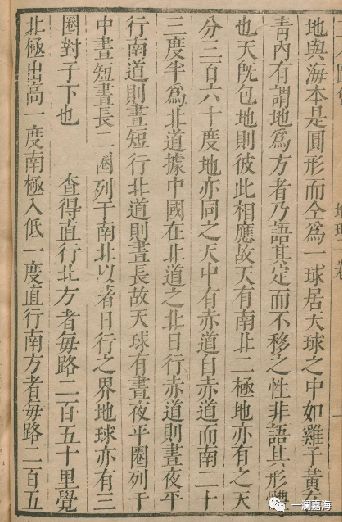 地與海本是圓形而仝為一球居天球之中如雞子黃在
青內有謂地為方者乃語其定而不移之性非語其形體
也天旣包地則彼此相應故天有南北二極地亦有之天
分三百六十度地亦同之天中有赤道自赤道而南二十
三度半為北道據中國在北道之北日行赤道則晝夜平
行南道則晝短行北道則晝長故天球有晝夜平圈列于
中晝短晝長二圈列于南北以著日行之界地球亦有三
圈對于下也　查得直行北方者每路二百五十里覺
北極出高一度南極入低一度直行南方者每路二百五
一澜嘉海